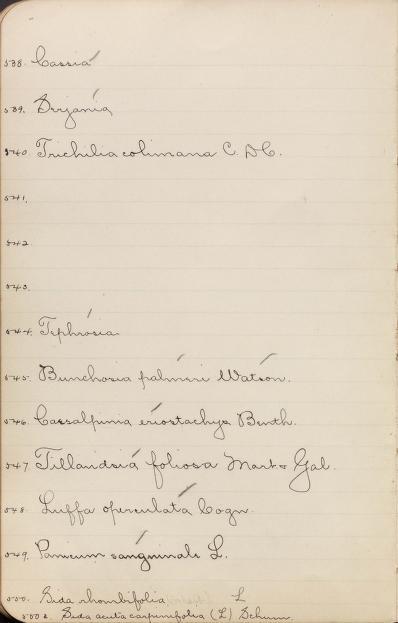 538. Cassia
539. Serjania
540. Trichilia colimana C. DC.
541.
542
543.
544. Tephrosia
545. Bunchosia palmeri Watson.
546. Caesalpinia eriostachys Benth.
547 Tillandsia foliosa Mart & Gal.
548. Luffa operculata Cogn.
549. Panicum sanguinale L.
550. Sida rhombifolia L
550 a. Sida acuta carpinifolia (L) Schum.